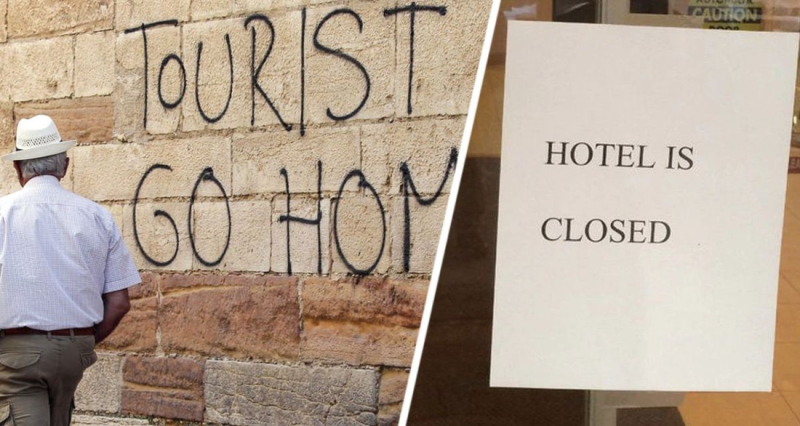 TOURIST
GO HOM
HOTEL IS
CLOSED
CAUTION